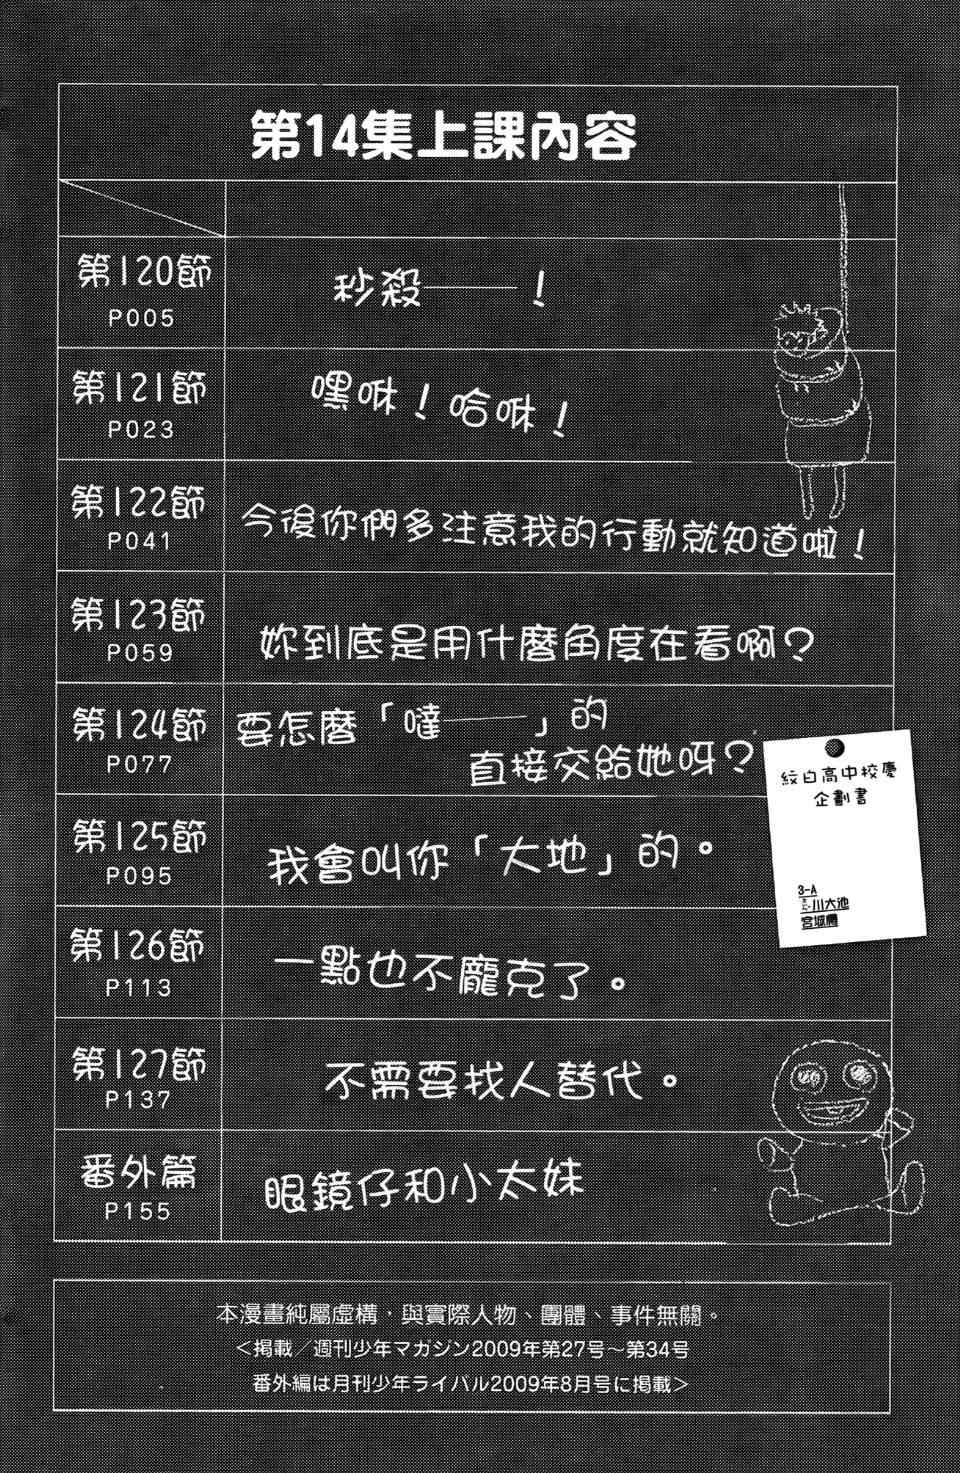 第14集上課內容
第120節
P005
秒殺——！
第121節
P023
嘿咻！哈咻！
第122節
P041
今後你們多注意我的行動就知道啦！
第123節
P059
妳到底是用什麼角度在看啊？
第124節
P077
要怎麼「噠——」的
直接交給她呀？
第125節
P095
我會叫你「大地」的。
第126節
P113
一點也不龐克了。
第127節
P137
不需要找人替代。
番外篇
P155
眼鏡仔和小太妹
紋白高中校慶
企劃書
3-A
川大池
宮城
本漫畫純屬虛構，與實際人物、團體、事件無關。
＜掲載／週刊少年マガジン2009年第27号～第34号
番外編は月刊少年ライバル2009年8月号に掲載＞